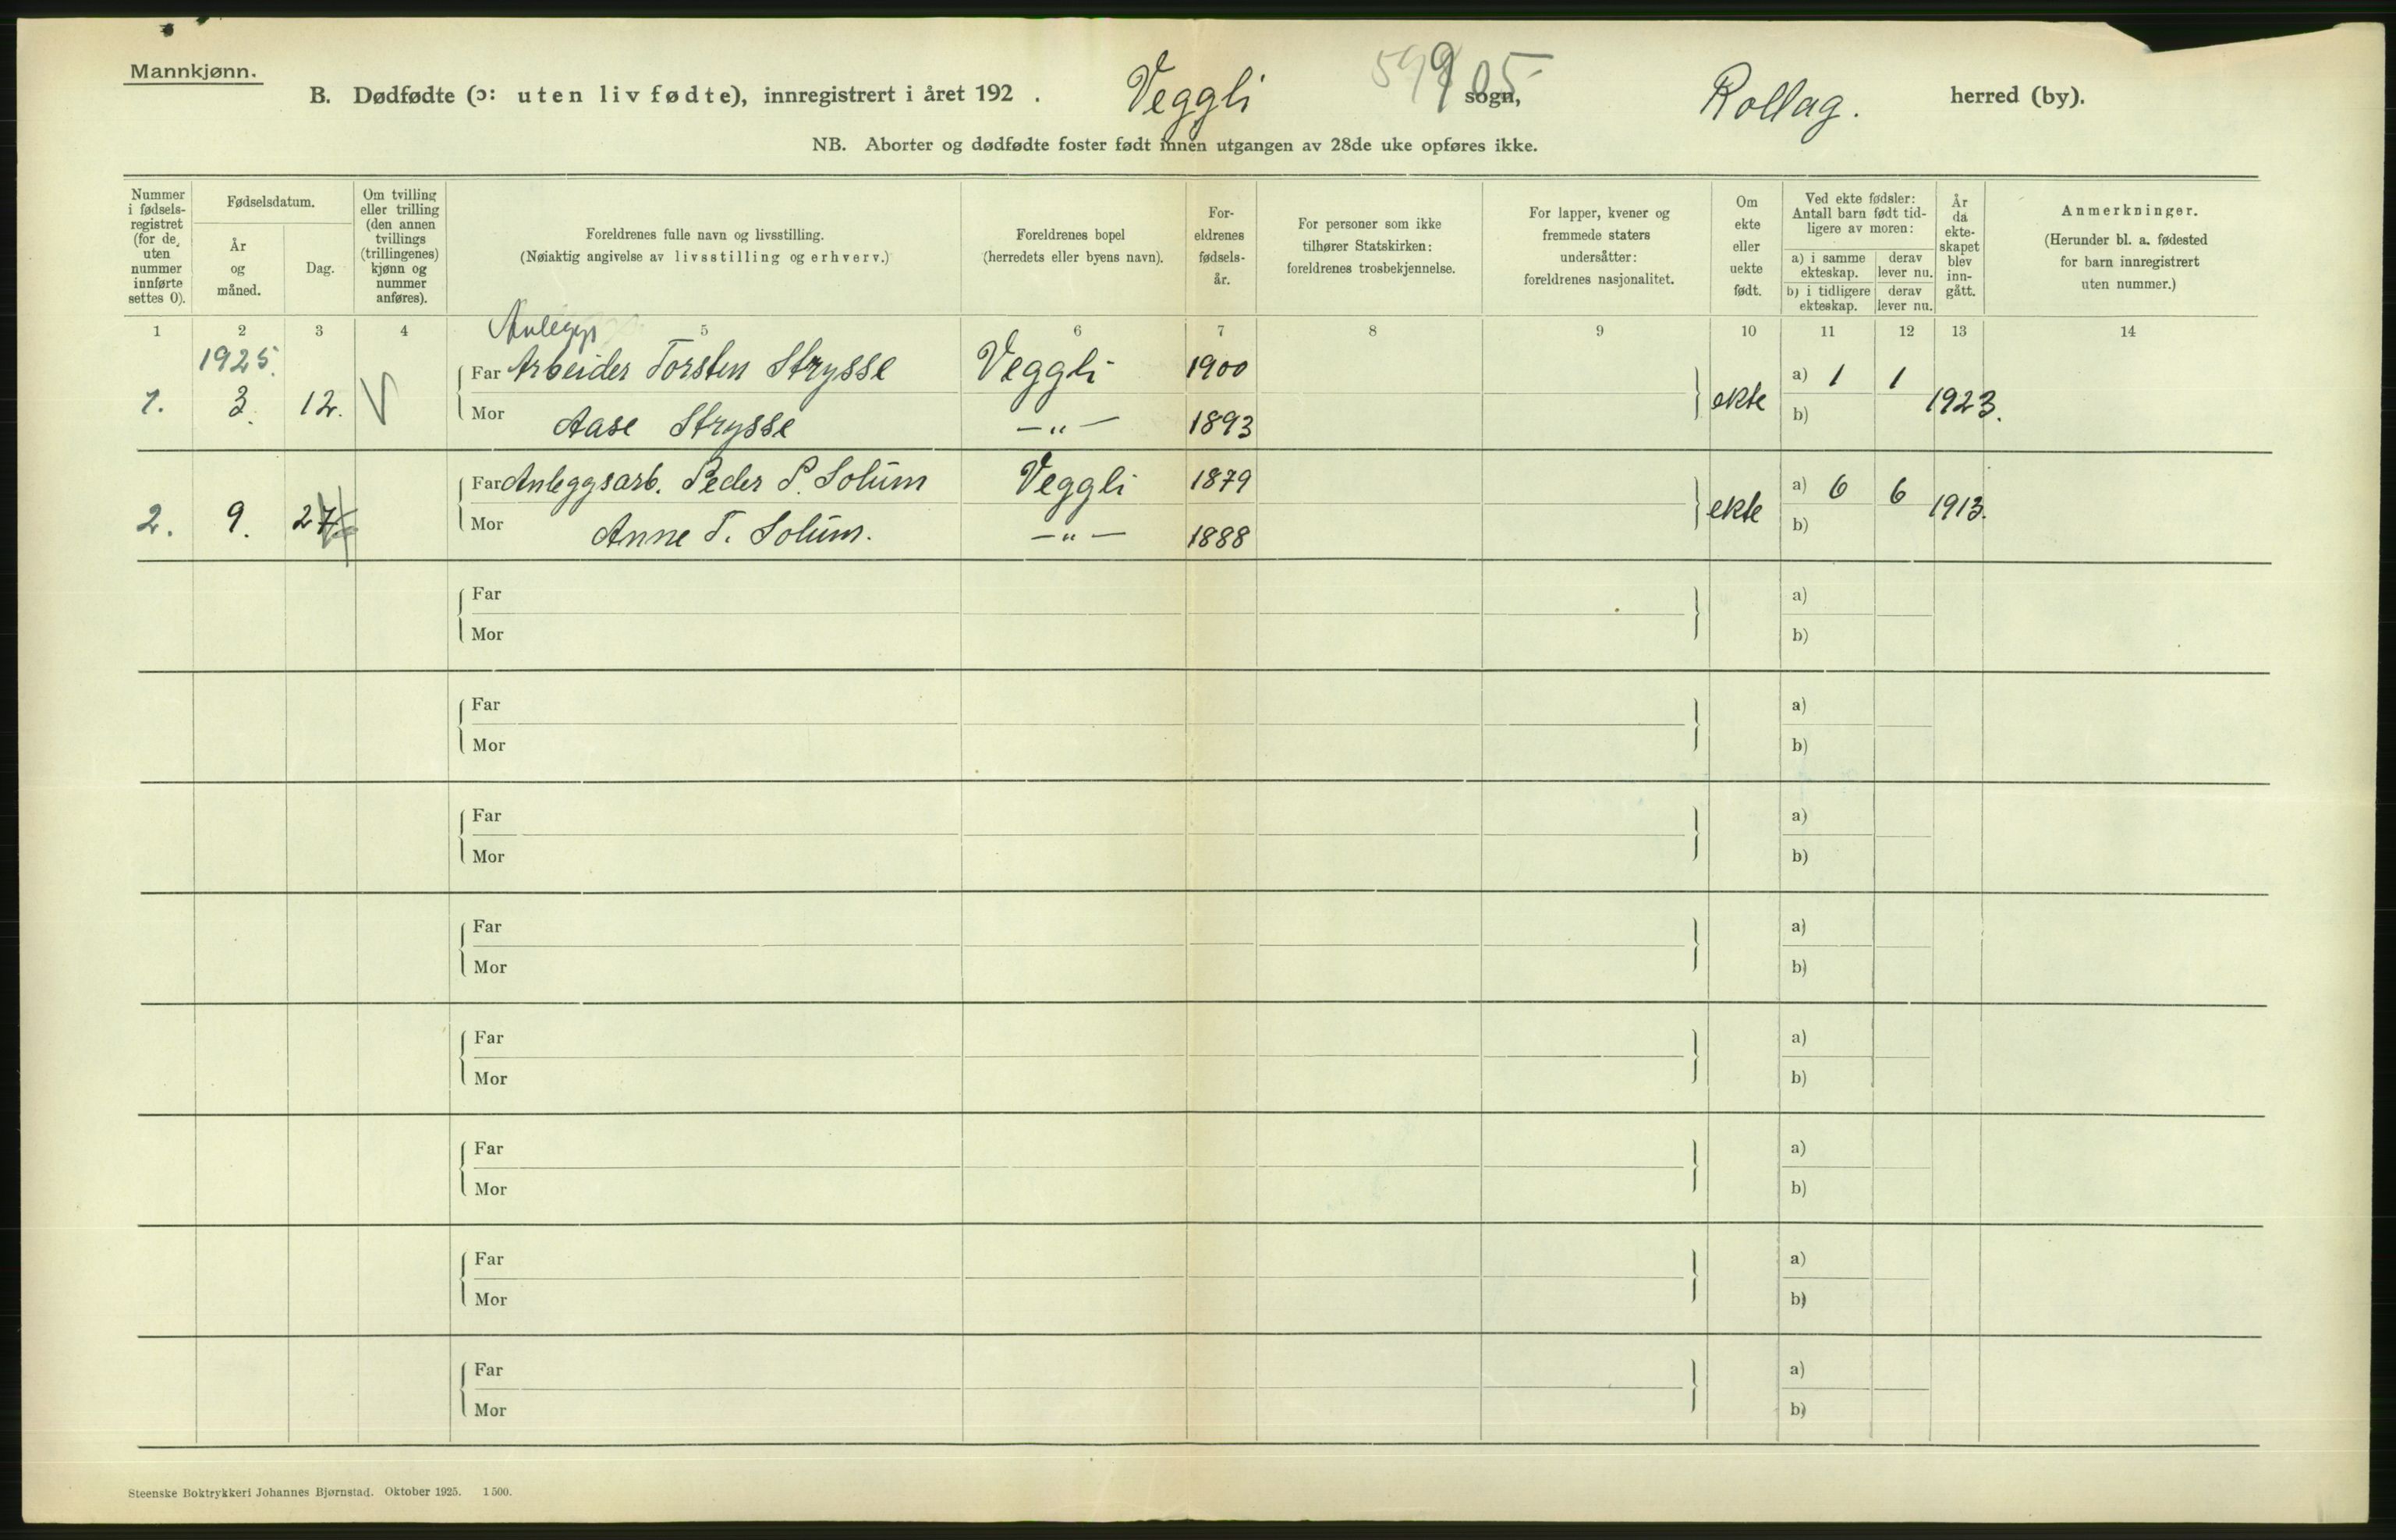 Mannkjønn.
B. Dødfødte (ɔ: uten liv fødte), innregistrert i året 192 . Veggli sogn, Rollag. herred (by).
NB. Aborter og dødfødte foster født innen utgangen av 28de uke opføres ikke.
Nummer i fødsels-registret (for de uten nummer innførte settes 0).
Fødselsdatum.
År og måned.
Dag.
Om tvilling eller trilling (den annen tvillings (trillingenes) kjønn og nummer anføres).
Foreldrenes fulle navn og livsstilling. (Nøiaktig angivelse av livsstilling og erhverv.)
Foreldrenes bopel (herredets eller byens navn).
For-eldrenes fødsels-år.
For personer som ikke tilhører Statskirken: foreldrenes trosbekjennelse.
For lapper, kvener og fremmede staters undersåtter: foreldrenes nasjonalitet.
Om ekte eller uekte født.
Ved ekte fødsler: Antall barn født tid-ligere av moren:
a) i samme ekteskap. derav lever nu.
b) i tidligere ekteskap. derav lever nu.
År da ekte-skapet blev inn-gått.
Anmerkninger. (Herunder bl. a. fødested for barn innregistrert uten nummer.)
1 2 3 4 5 6 7 8 9 10 11 12 13 14
1925. Anleggs
Far Arbeider Torsten Strysse Veggli 1900 a) 1 1
1. 3. 12. V ekte 1923.
Mor Aase Strysse —"— 1893 b)
Far Anleggsarb. Peder P. Solum Veggli 1879 a) 6 6
2. 9. 27 ekte 1913.
Mor Anne T. Solum. —"— 1888 b)
Far a)
Mor b)
Far a)
Mor b)
Far a)
Mor b)
Far a)
Mor b)
Far a)
Mor b)
Far a)
Mor b)
Far a)
Mor b)
Far a)
Mor b)
Steenske Boktrykkeri Johannes Bjørnstad. Oktober 1925. 1500.